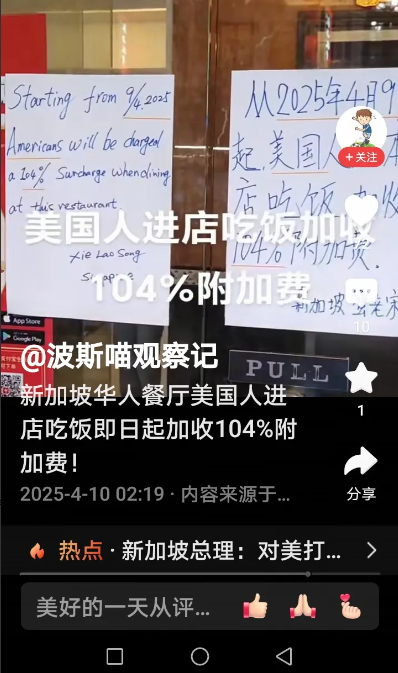 Starting from 9/4.2025
Americans will be charged
a 104% Surcharge when dining
at this restaurant
Xie Lao Song
从2025年4月9
起,美国人
店吃饭
104%附加费.
新加坡
美国人进店吃饭加收
104%附加费
App Store
Google Play
PULL
关注
10
@波斯喵观察记
新加坡华人餐厅美国人进
店吃饭即日起加收104%附
加费!
1
2025-4-10 02:19 · 内容来源于...
分享
热点 · 新加坡总理：对美打...
美好的一天从评...